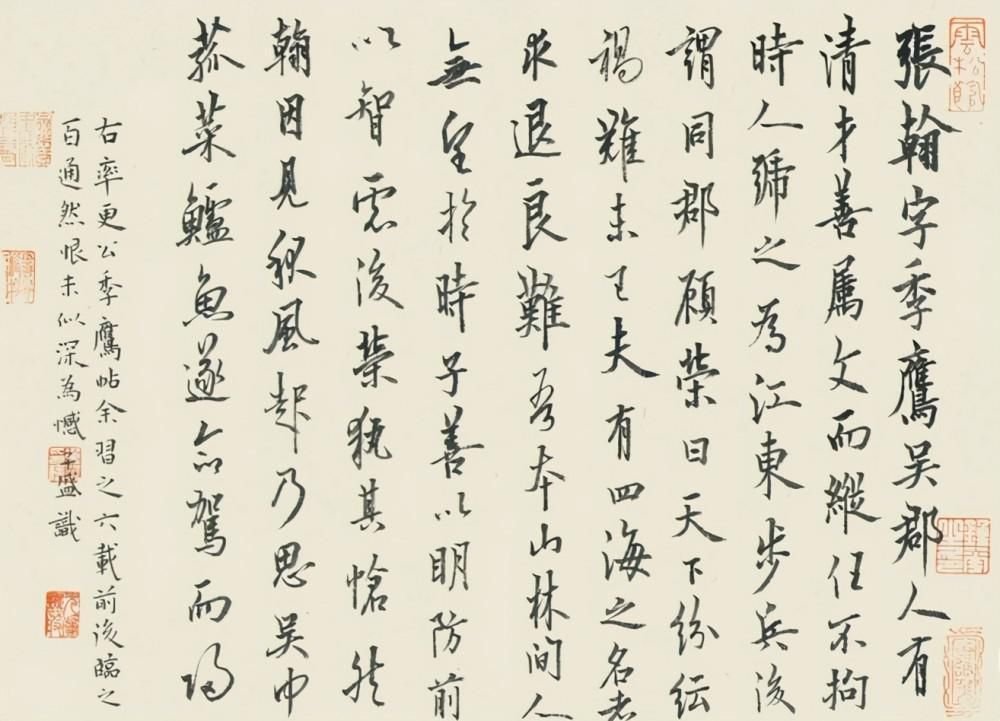 張翰字季鷹吳郡人有
清才善屬文而縱任不拘
時人號之為江東步兵後
謂同郡顧榮曰天下紛紜
禍難未已夫有四海之名者
求退良難吾本山林間人
無望於時子善以明防前
以智慮後榮執其愴然
翰因見秋風起乃思吳中
菰菜鱸魚遂命駕而歸
右率更公季鷹帖余習之六載前後臨之
百通然恨未似深為憾盛識